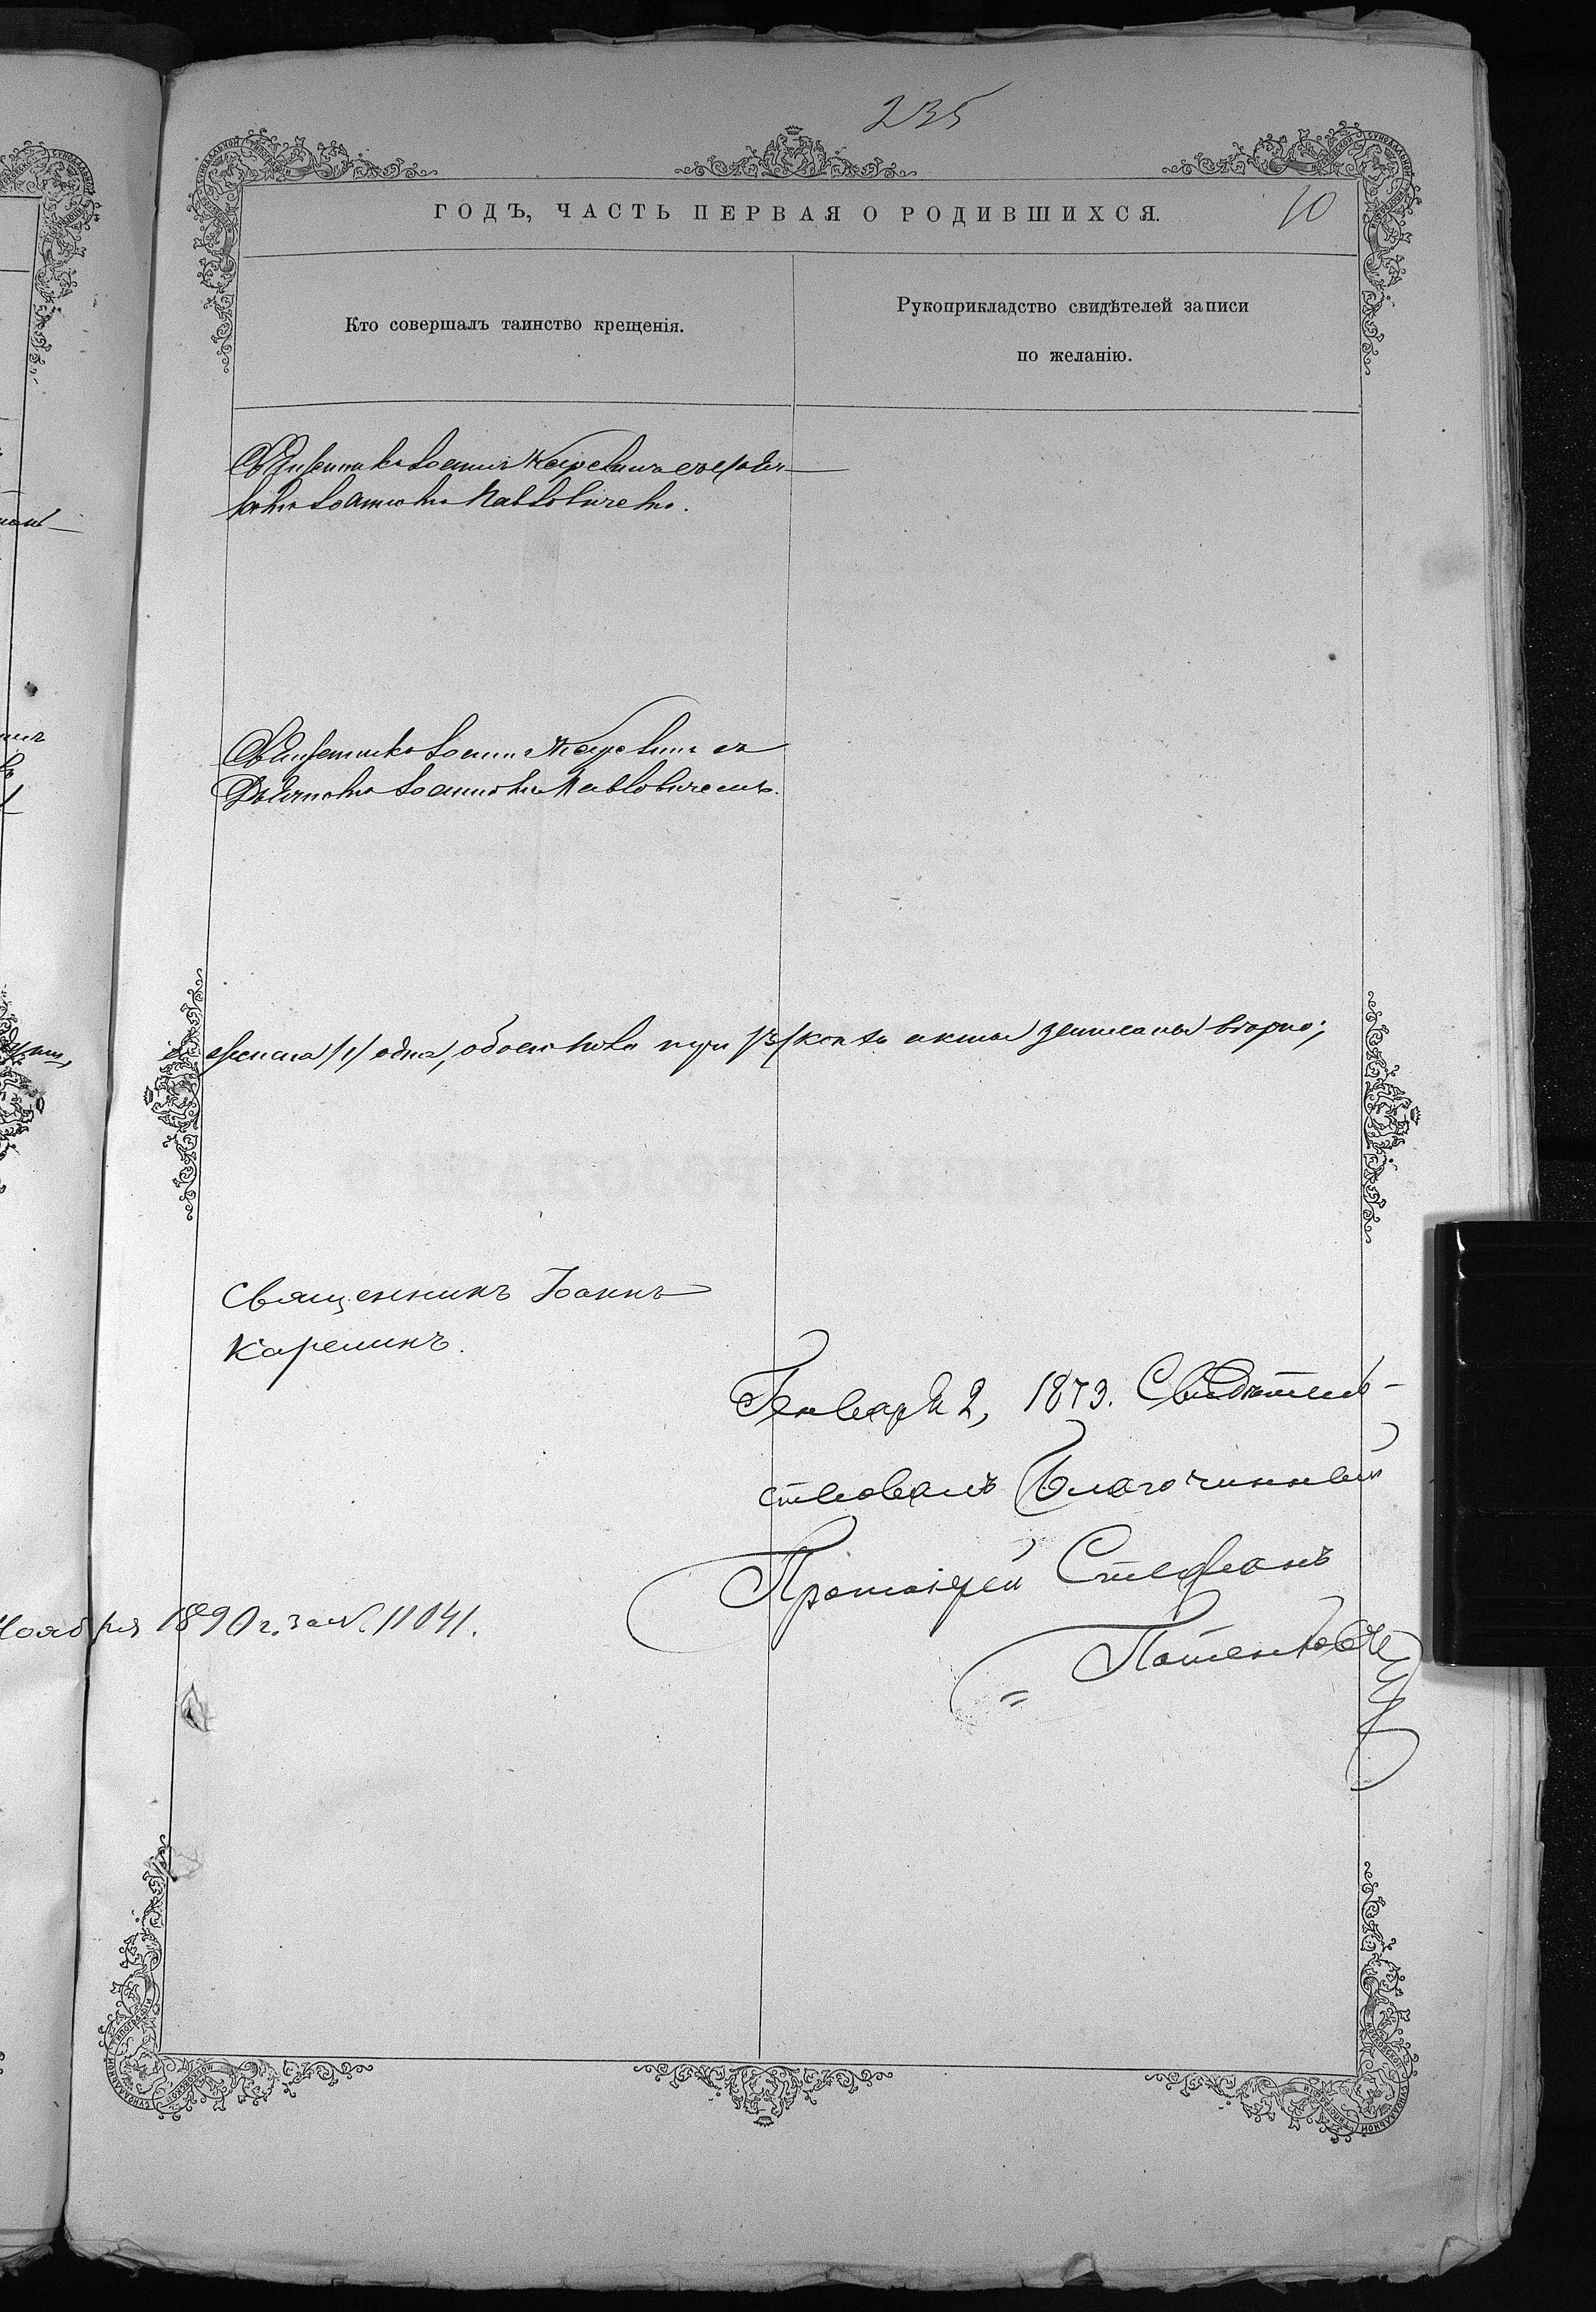 235
ГОДЪ, ЧАСТЬ ПЕРВАЯ О РОДИВШИХСЯ.
10
Кто совершалъ таинство крещенія.
Рукоприкладство свидѣтелей записи
по желанію.
Священникъ Іоаннъ Карелинъ съ дья-
кономъ Іоанномъ Павловичемъ.
Священникъ Іоаннъ Карелинъ съ
Дьякономъ Іоанномъ Павловичемъ.
/1/ одна, обоего пола три /3/ кои въ актъ записаны вѣрно;
Священникъ Іоаннъ
Карелинъ.
Генваря 2, 1873. Свидѣтель-
ствовалъ Благочинный
Протоіерей Стефанъ
Ноября 1890 г. за №. 11041.